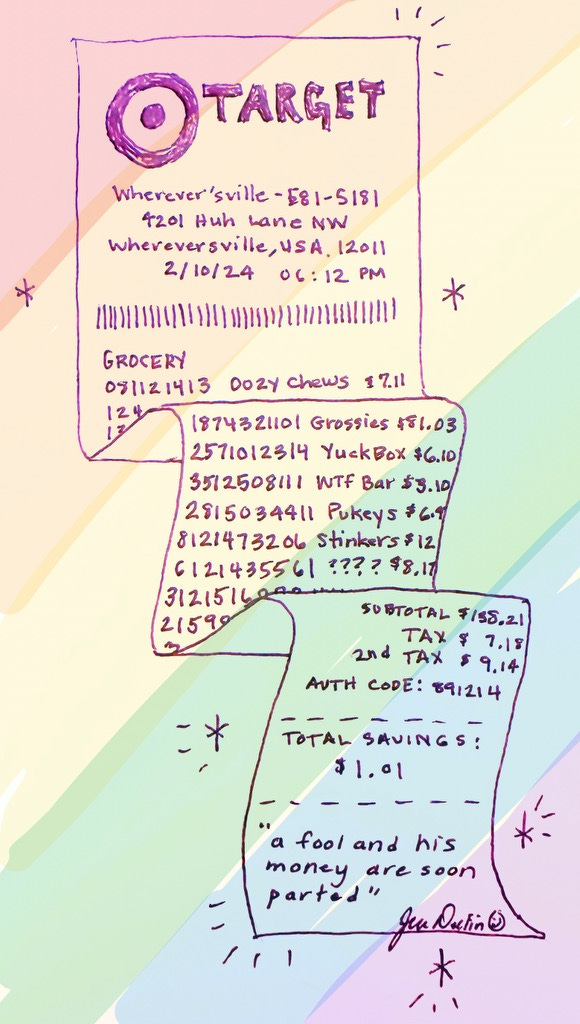 TARGET
Wherever'sville - E81-5181
4201 Huh Lane NW
Whereversville, USA. 12011
2/10/24 06:12 PM
GROCERY
081121413 Oozy Chews $7.11
124
1874321101 Grossies $81.03
2571012314 YuckBox $6.10
3512508111 WTF Bar $3.10
2815034411 Pukeys $6.9
8121473206 Stinkers $12
6121435561 ???? $8.17
3121516
2159
SUBTOTAL $138.21
TAX $ 7.18
2nd TAX $ 9.14
AUTH CODE: 891214
TOTAL SAVINGS:
$1.01
"a fool and his
money are soon
parted"